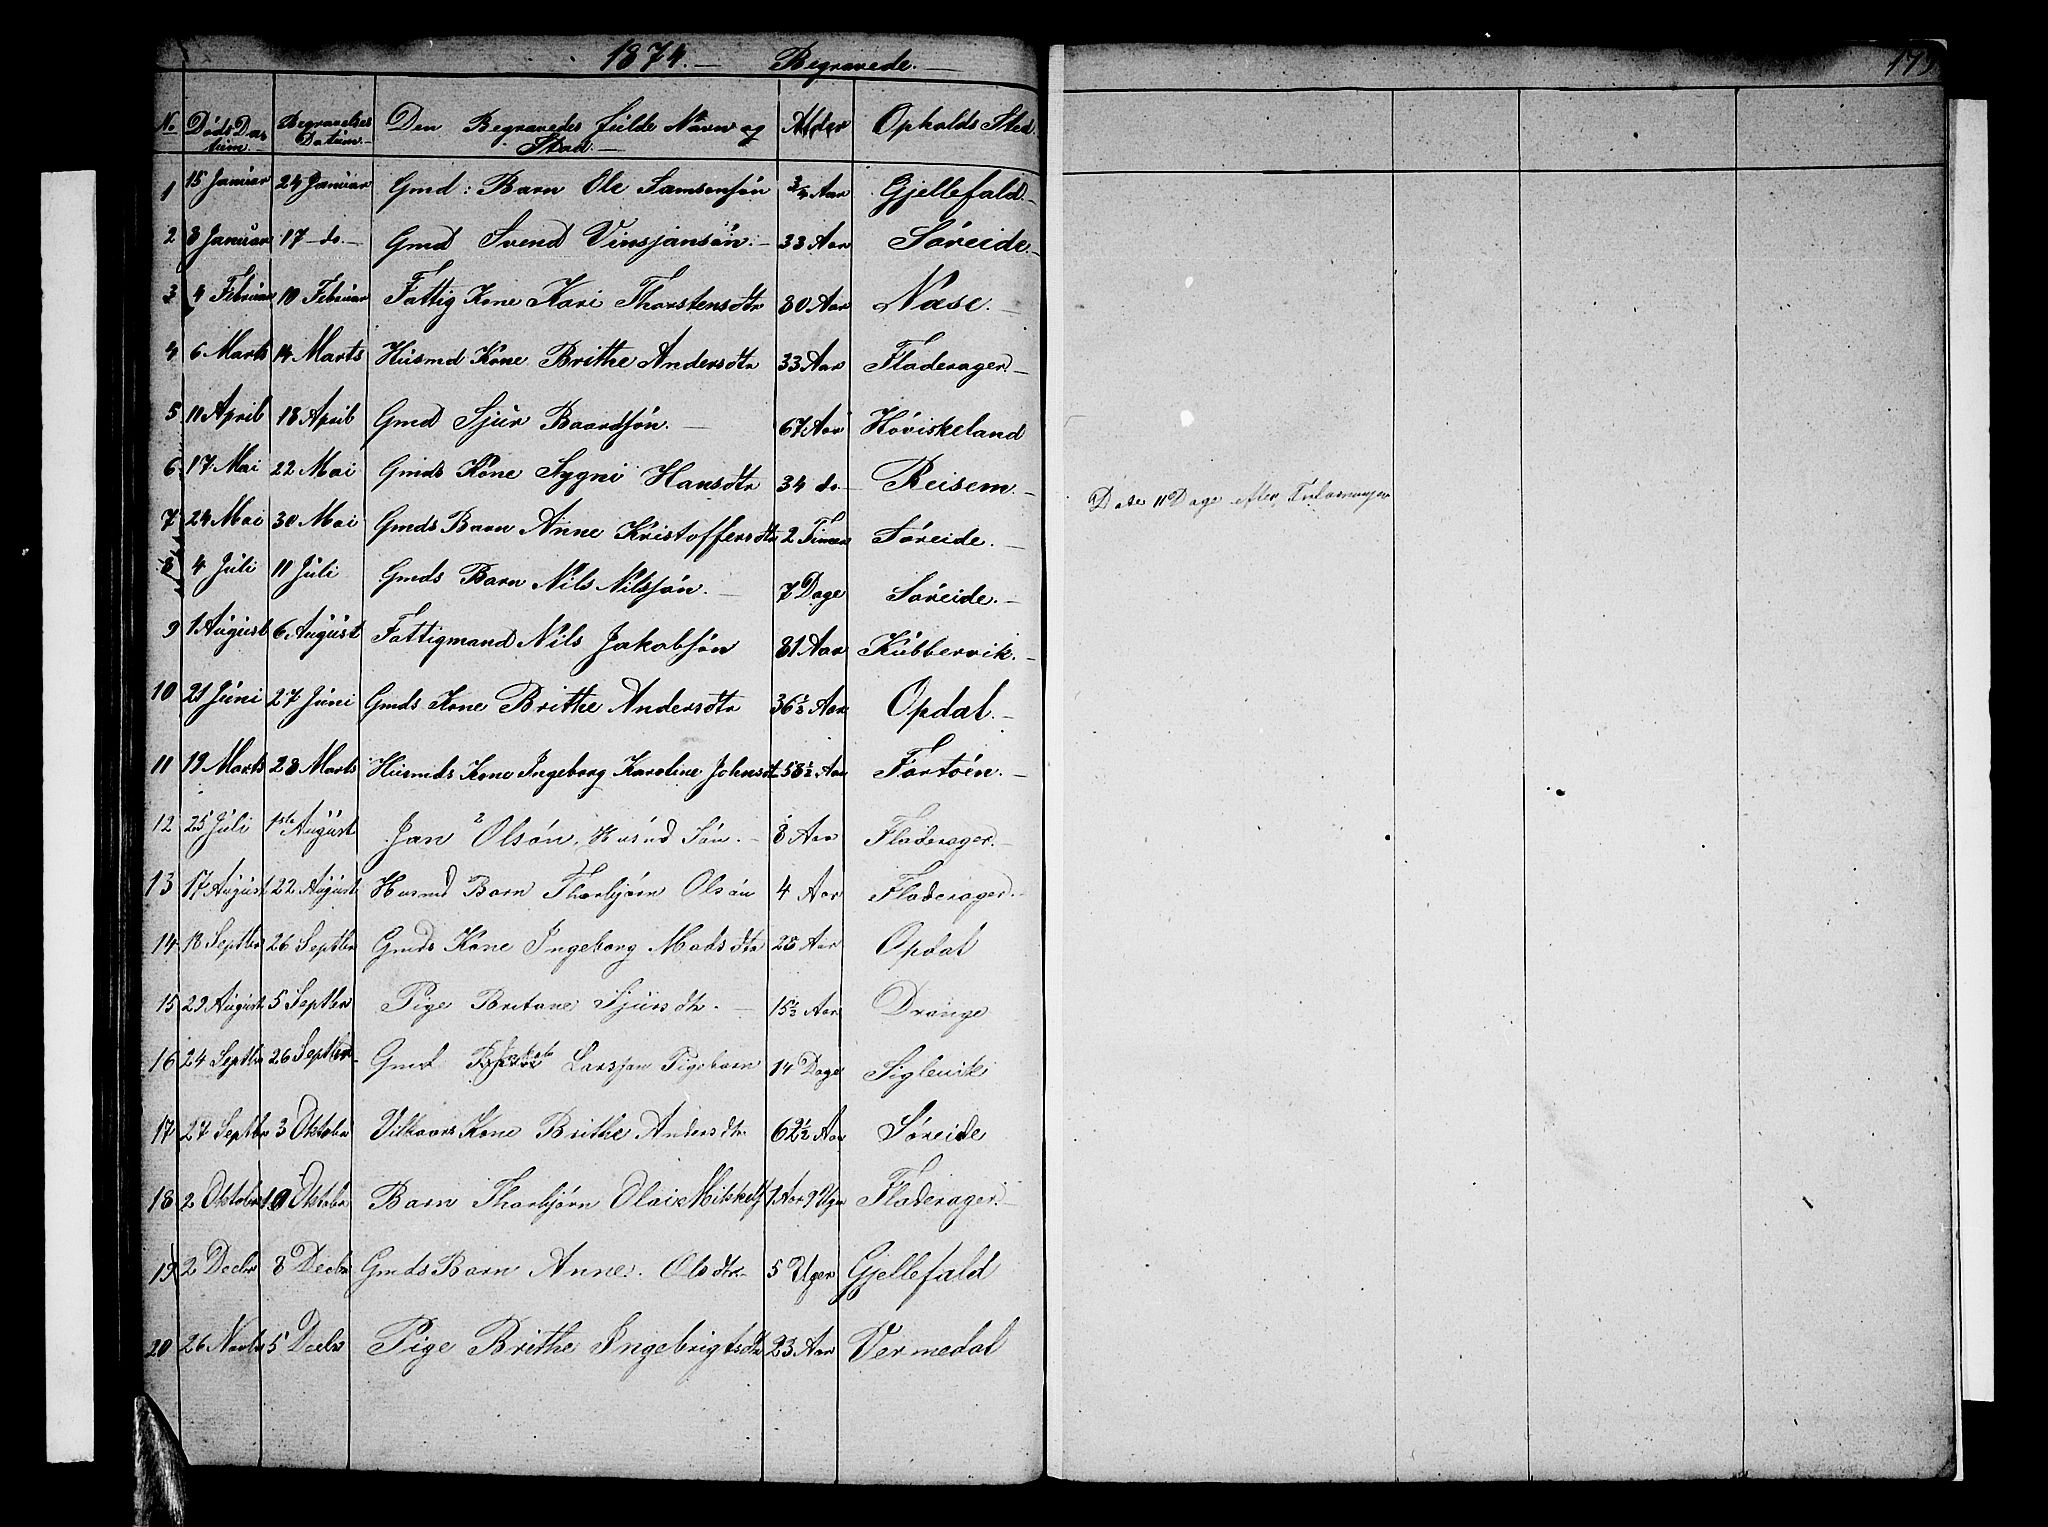 1874. — Begravede. —
179
No Döds Datum. Begravelses Datum. — Den Begravedes fulde Navn og Stand. — Alder Opholds Sted.
1 15 Januar 24 Januar Gmd: Barn Ole Samsonsøn 3/4 Aar Gjellefald. —
2 8 Januar 17 - do. - Gmd Svend Vinsjansøn. — 33 Aar Søreide. —
3 4 Februar 10 Februar Fattig Kone Kari Thorstensdtr 80 Aar Næse. —
4 6 Marts 14 Marts Husmd Kone Brithe Andersdtr 33 Aar Fladerager. —
5 11 April 18 April Gmd Sjur Baardsøn. — 67 Aar Høviskeland
6 17 Mai 22 Mai Gmds Kone Sygni Hansdtr 34 do — Reisem. — Døde 11 Dage efter
7 24 Mai 30 Mai Gmds Barn Anne Kristoffersdtr 2 Timer Søreide. —
8 4 Juli 11 Juli Gmds Barn Nils Nilssøn. — 7 Dage Søreide. —
9 1 August 6 August Fattigmand Nils Jakobsøn 81 Aar Kubbervik. —
10 21 Juni 27 Juni Gmds Kone Brithe Andersdtr 36 1/2 Aar Opdal. —
11 19 Marts 28 Marts Husmds Kone Ingeborg Karoline Johnsdt 58 1/2 Aar Fortøen. —
12 25 Juli 1ste August Jan Olsøn, Husmd Søn. — 8 Aar Fladerager. —
13 17 August 22 August Husmd Barn Thorbjørn Olsøn 4 Aar Fladerager. —
14 18 Septbr 26 Septbr Gmds Kone Ingeborg Madsdtr 28 Aar Opdal
15 29 August 5 Septbr Pige Britane Sjursdtr. — 15 1/2 Aar Drange
16 24 Septbr 26 Septbr Gmd Larsjan Pigebarn 14 Dage Siglevik
17 27 Septbr 3 Oktober Vilkaars Kone Brithe Andersdtr 62 1/2 Aar Søreide
18 2 Oktober 10 Oktober Barn Thorbjørn Olai 1 Aar 9 Uger Fladerager. —
19 2 Decbr 8 Decbr Gmds Barn Anne Olsdtr 5 Uger Gjellefald
20 26 Novbr 5 Decbr Pige Brithe Ingebrigtsdtr 23 Aar Vermedal